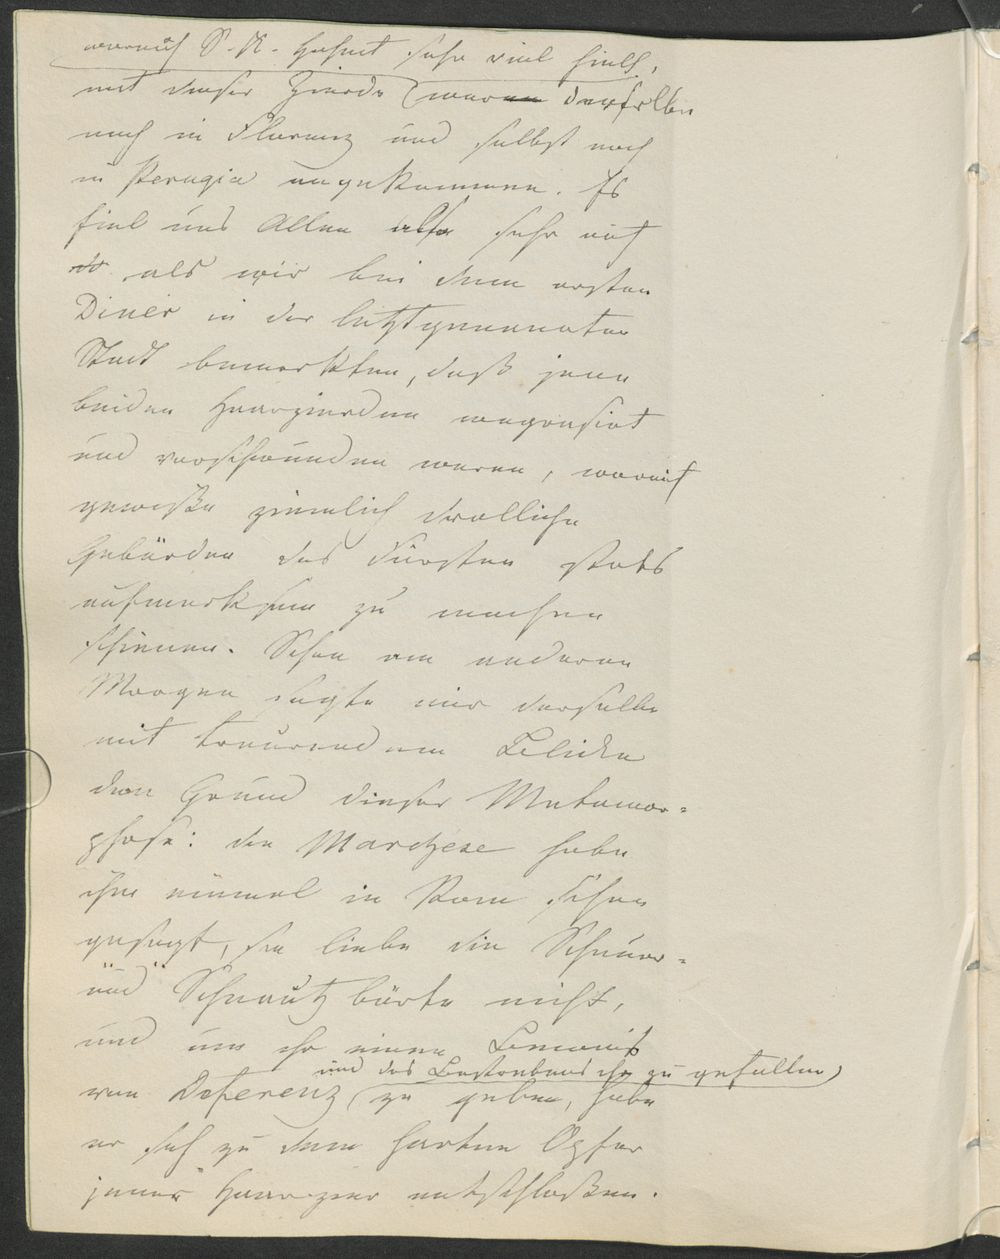 worauf S. K. Hoheit sehr viel hielt,
mit dieser Zierde (waren derselben
noch in Florenz und selbst noch
in Perugia angekommen. Es
fiel uns Allen also sehr auf
als wir bei dem ersten
Diner in der letztgenannten
Stadt bemerkten, daß jene
beiden Haarzierden wegrasirt
und verschwunden waren, worauf
gewisse ziemlich drollige
Gebärden des Fürsten stets
aufmerksam zu machen
schienen. Schon am anderen
Morgen sagte mir derselbe
mit trauerndem Blicke
den Grund dieser Metamor=
phose: die Marchese habe
ihm einmal in Rom schon
gesagt, sie liebe die Schnurr=
und Schnautzbärte nicht,
und um ihr einen Beweis
und das Bestreben ihr zu gefallen)
von Deferenz (zu geben, habe
er sich zu dem harten Opfer
jener Haarzier entschloßen.